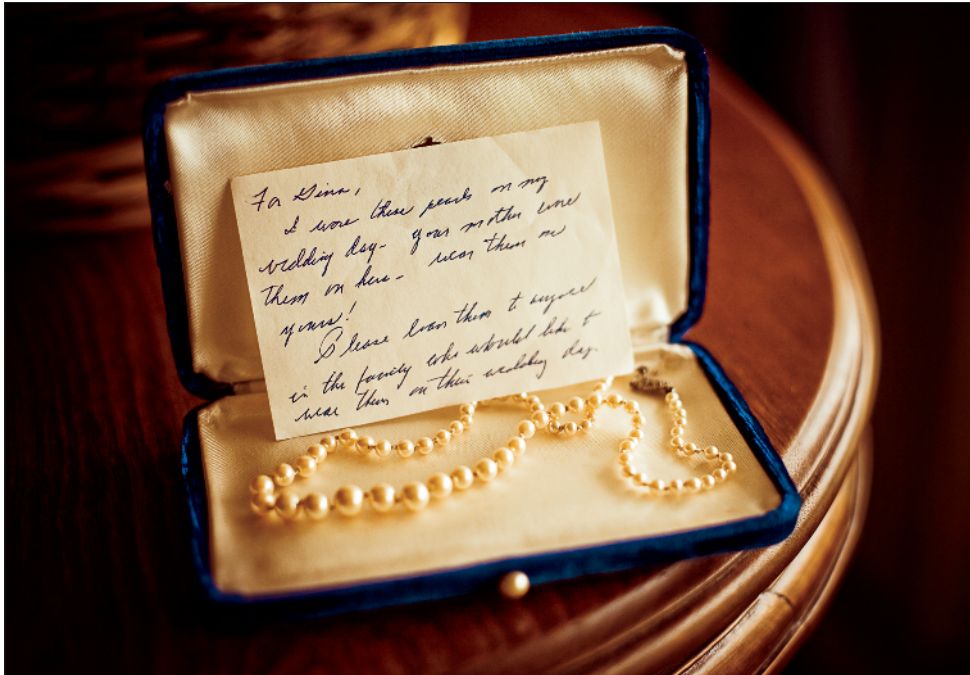 For Gina,
I wore these pearls on my
wedding day- your mother wore
them on hers- wear them on
yours!
Please loan them to anyone
in the family who would like to
wear them on their wedding day.